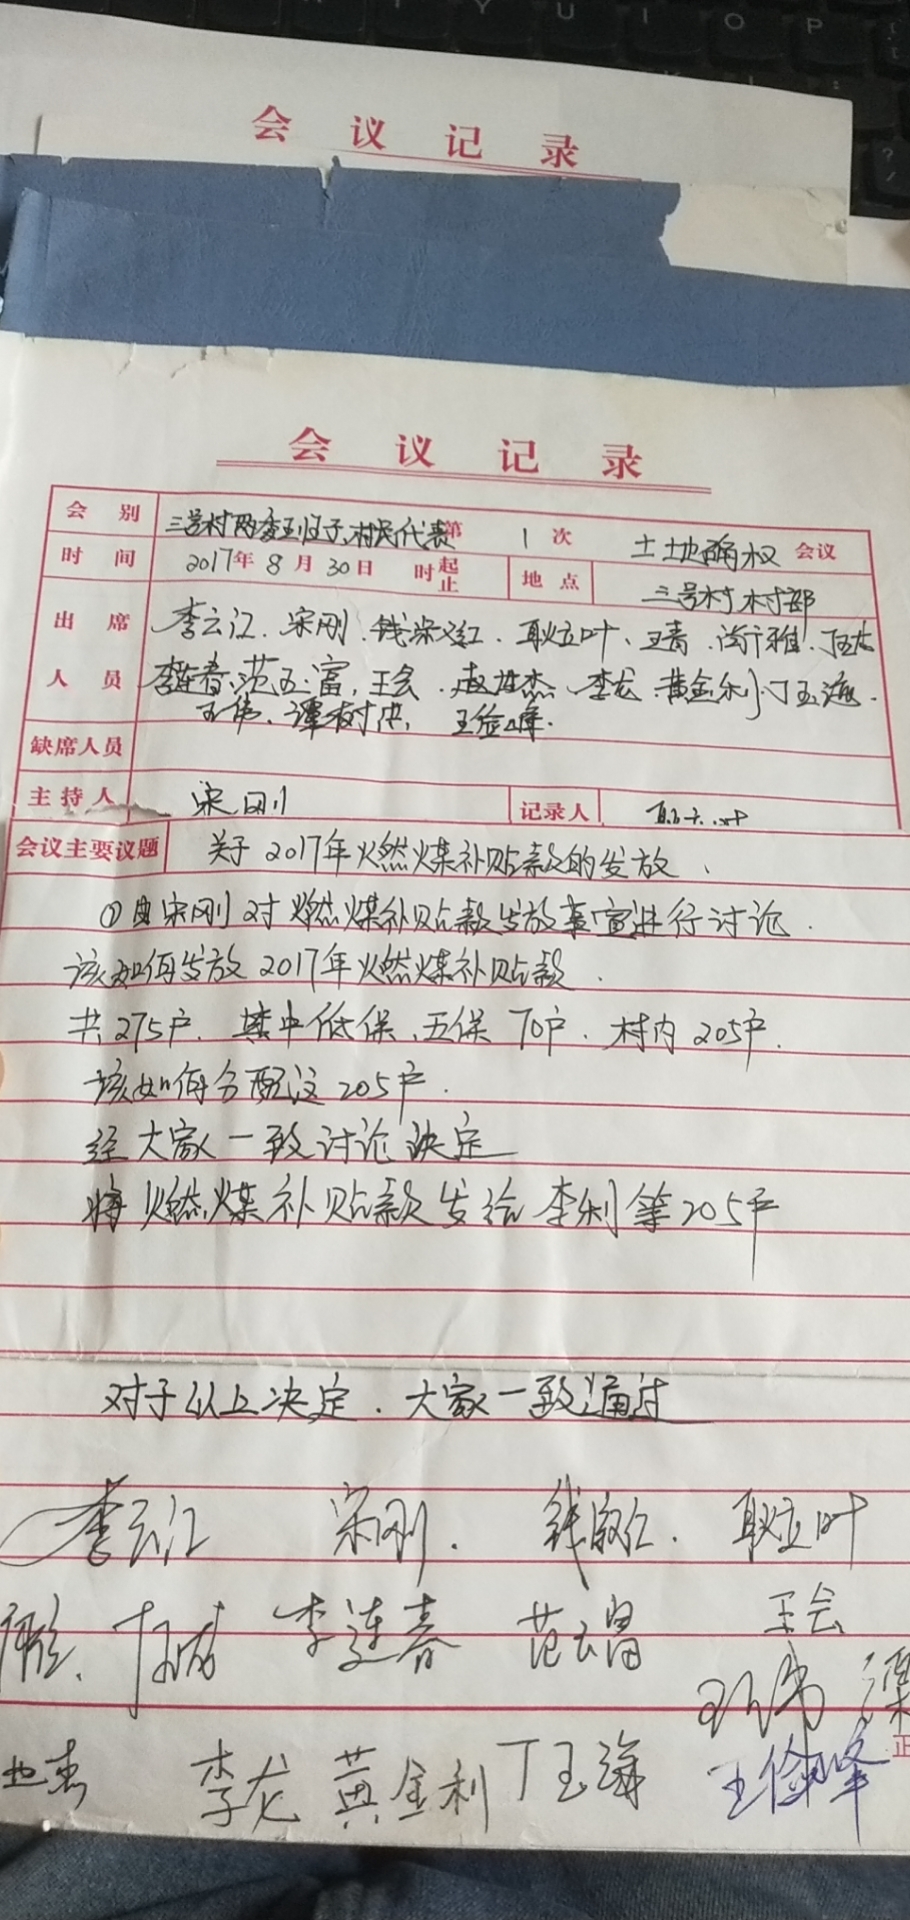 Y U I O P
会议记录
会议记录
会别 三号村两委班子、村民代表 第 1 次 土地确权 会议
时间 2017年 8月 30日 时起止 地点 三号村村部
出席 李云江、宋刚、钱深红、耿立叶、王青、
人员 李连春、范玉富、王会、赵世杰、李龙、黄金利、丁玉海、
王伟、谭树洪、王俭峰.
缺席人员
主持人 宋刚 记录人 耿立叶
会议主要议题 关于2017年燃煤补贴款的发放、
①由宋刚对燃煤补贴款发放事宜进行讨论.
该如何发放2017年燃煤补贴款.
共275户.其中低保、五保70户.村内205户.
该如何分配这205户.
经大家一致讨论决定
将燃煤补贴款发给李利等205户
对于以上决定.大家一致通过
李云江 宋刚. 耿立叶
李连春 王会
王伟 谭
世杰 李龙 黄金利 丁玉海 王俭峰
正